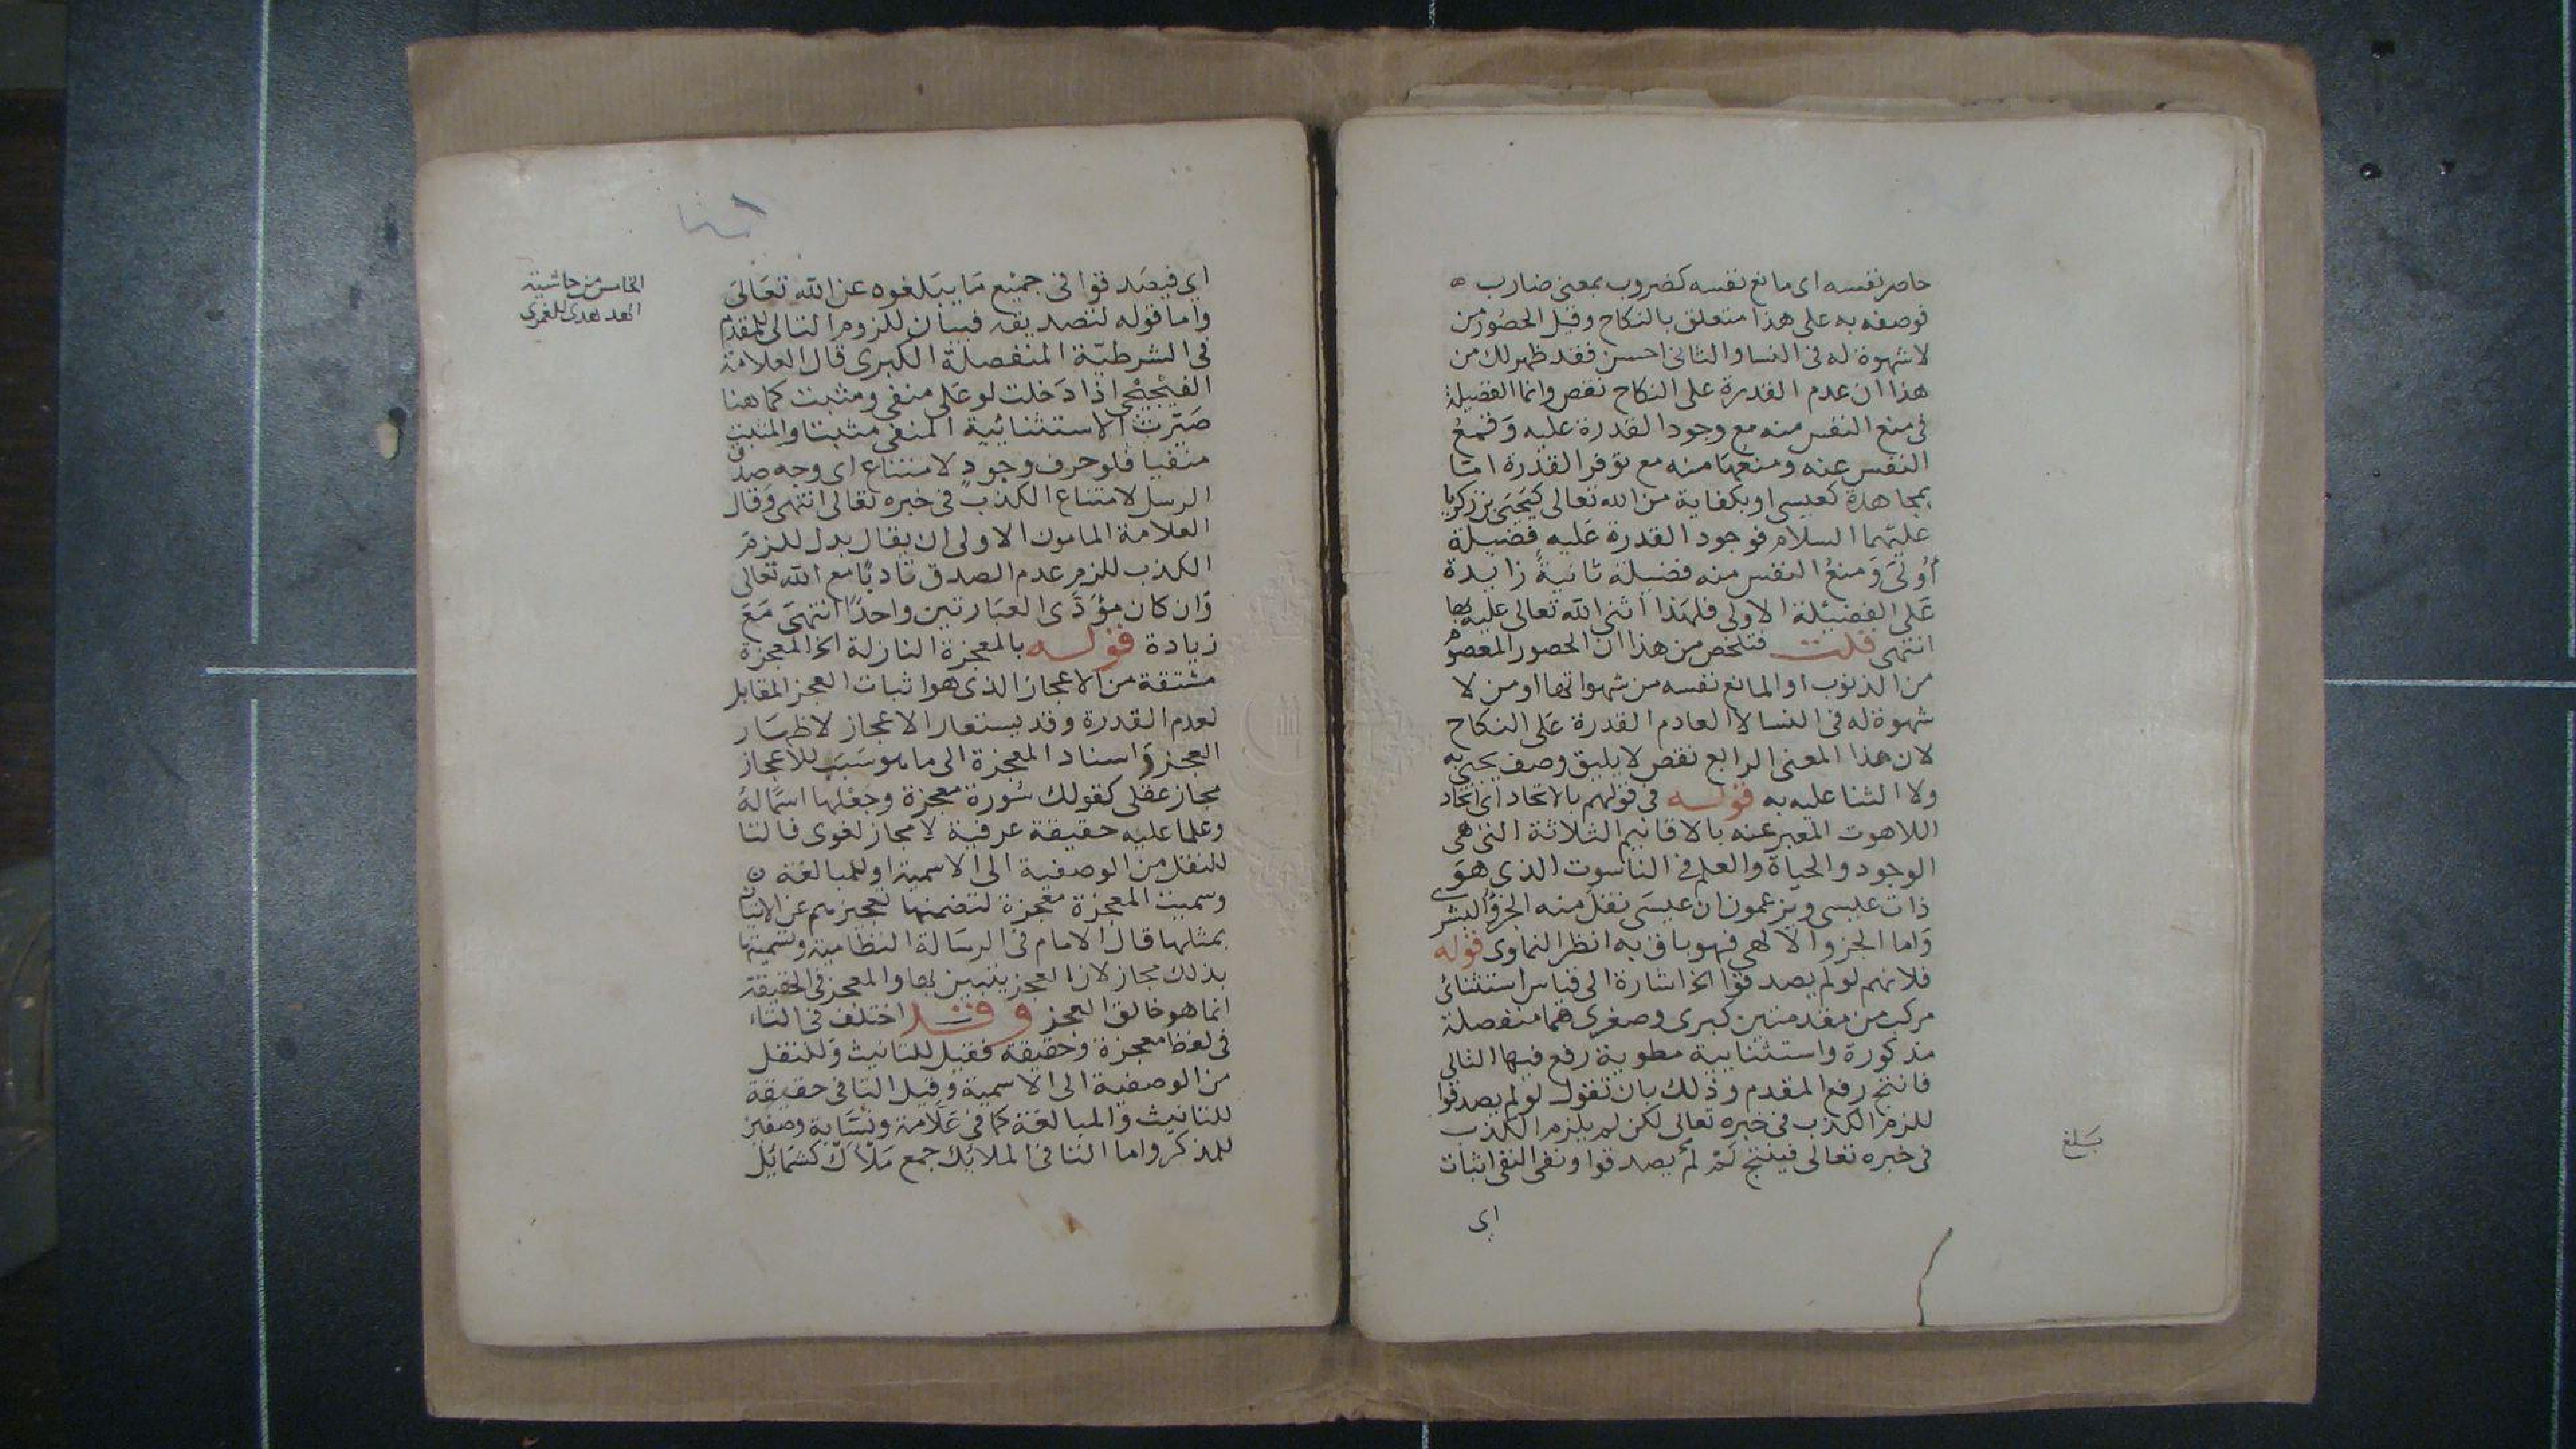 حاصر نفسه اى مانع نفسه كضروب بمعنى ضارب ه
فوصفه به على هذا متعلق بالنكاح وقيل الحصور من
لا شهوة له فى النسا والثانى احسن فقد ظهر لك من
هذا ان عدم القدرة على النكاح نقص وانما الفضيلة
فى منع النفس منه مع وجود القدرة عليه وَقمعُ
النفس عنه ومنعها منه مع توفر القدرة امّا
بمجاهدة كعيسى او بكفاية من الله تعالى كيَحيَى بن زكريا
عليهما السلام فوجود القدرة عَليه فضيلة
أوُلىَ وَمنعُ النفس منه فضيلة ثانيةٌ زايدة
عَلى الفضيلة الاولى فلهذا اثنى الله تعالى عليه بها
انتهى قلت فتلخص من هذا ان الحصور المعصومُ
من الذنوب او المانع نفسه من شهواتها او من لا
شهوة له فى النسا لا العادم القدرة عَلى النكاح
لان هذا المعنى الرابع نقص لا يليق وصف يحيى به
ولا الثنا عليه به قوله فى قولهم بالاتحاد اى اتحاد
اللاهوت المعبر عنه بالاقانيم الثلاثة التى هى
الوجود والحياة والعلم فى الناسوت الذى هوَ
ذات عيسى ويزعمون ان عيسَى نقل منه الجزؤ البشرى
وَاما الجزو الالهى فهو باق به انظر النماوى قوله
فلانهم لو لم يصدقوا الخ اشارة الى قياس استثنائى
مركب من مقدمتين كبرى وصغرى هما منفصلة
مذكورة واستثنايية مطوية رفع فيها التالى
فانتج رفع المقدم وذلك بان تقول لو لم يصدقوا
للزم الكذب فى خبره تعالى لكن لم يلزم الكذب
فى خبره تعالى فينتج لَمْ لَمْ يصدقوا ونفى النفى اثبات
بَلغ
اى
اى فيصَدقوا فى جميْع مَا يبَلغوه عن الله تعَالىَ
واما قوله لتصديقه فبيان للزوم التالى للمقدم
فى الشرطيّة المنفصلة الكبرى قال العلامة
الفيْجيْجى اذا دَخلت لو عَلى منفى ومثبت كما هنا
صَيّرت الاستثنائية المنفى مثبتا والمثبت
منفيا فلو حرف وجودٍ لامتناع اى وجه صدق
الرسل لامتناع الكذب فى خبره تعالى انتهى وَقال
العلامة المامون الاولى ان يقال بدل للزمَ
الكذب للزم عدم الصدق تادبًا مع الله تعالى
وَان كان مؤدَّى العبَارتين واحدًا انتهىَ مَعَ
زيادة قوله بالمعجزة النازلة الخ المعجزة
مشتقة من الاعجاز الذى هو اثبات العجز المقابل
لعدم القدرة وقد يستعار الاعجاز لاظهَار
العجز وَاسناد المعجزة الى ما هو سَبَب للاعجاز
مجاز عقلى كقولك سُورة معجزة وجعْلها اسمًا لهُ
وعلما عليه حقيقة عرفية لا مجاز لغوى فالتا
للنقل من الوصفية الى الاسمية او للمبالغة ن
وسميت المعجزة معجزة لتضمنها تعجيزهم عن الاتيان
بمثلها قال الامام فى الرسَالة النظامية وتسميتها
بذلك مجاز لان العجز يتبين بها والمعجز فى الحقيقة
انما هو خالق العجز وقد اختلف فى التاء
فى لفظ معجزة وحقيقة فقيل للتانيث وَللنقل
من الوصفية الى الاسمية وقيل التا فى حقيقة
للتانيث وَالمبالغة كما فى عَلاّمة ونسَّابة وصفين
للمذكر واما التا فى الملايك جمع مَلأَك كشمَايُل
الخامس من حاشية